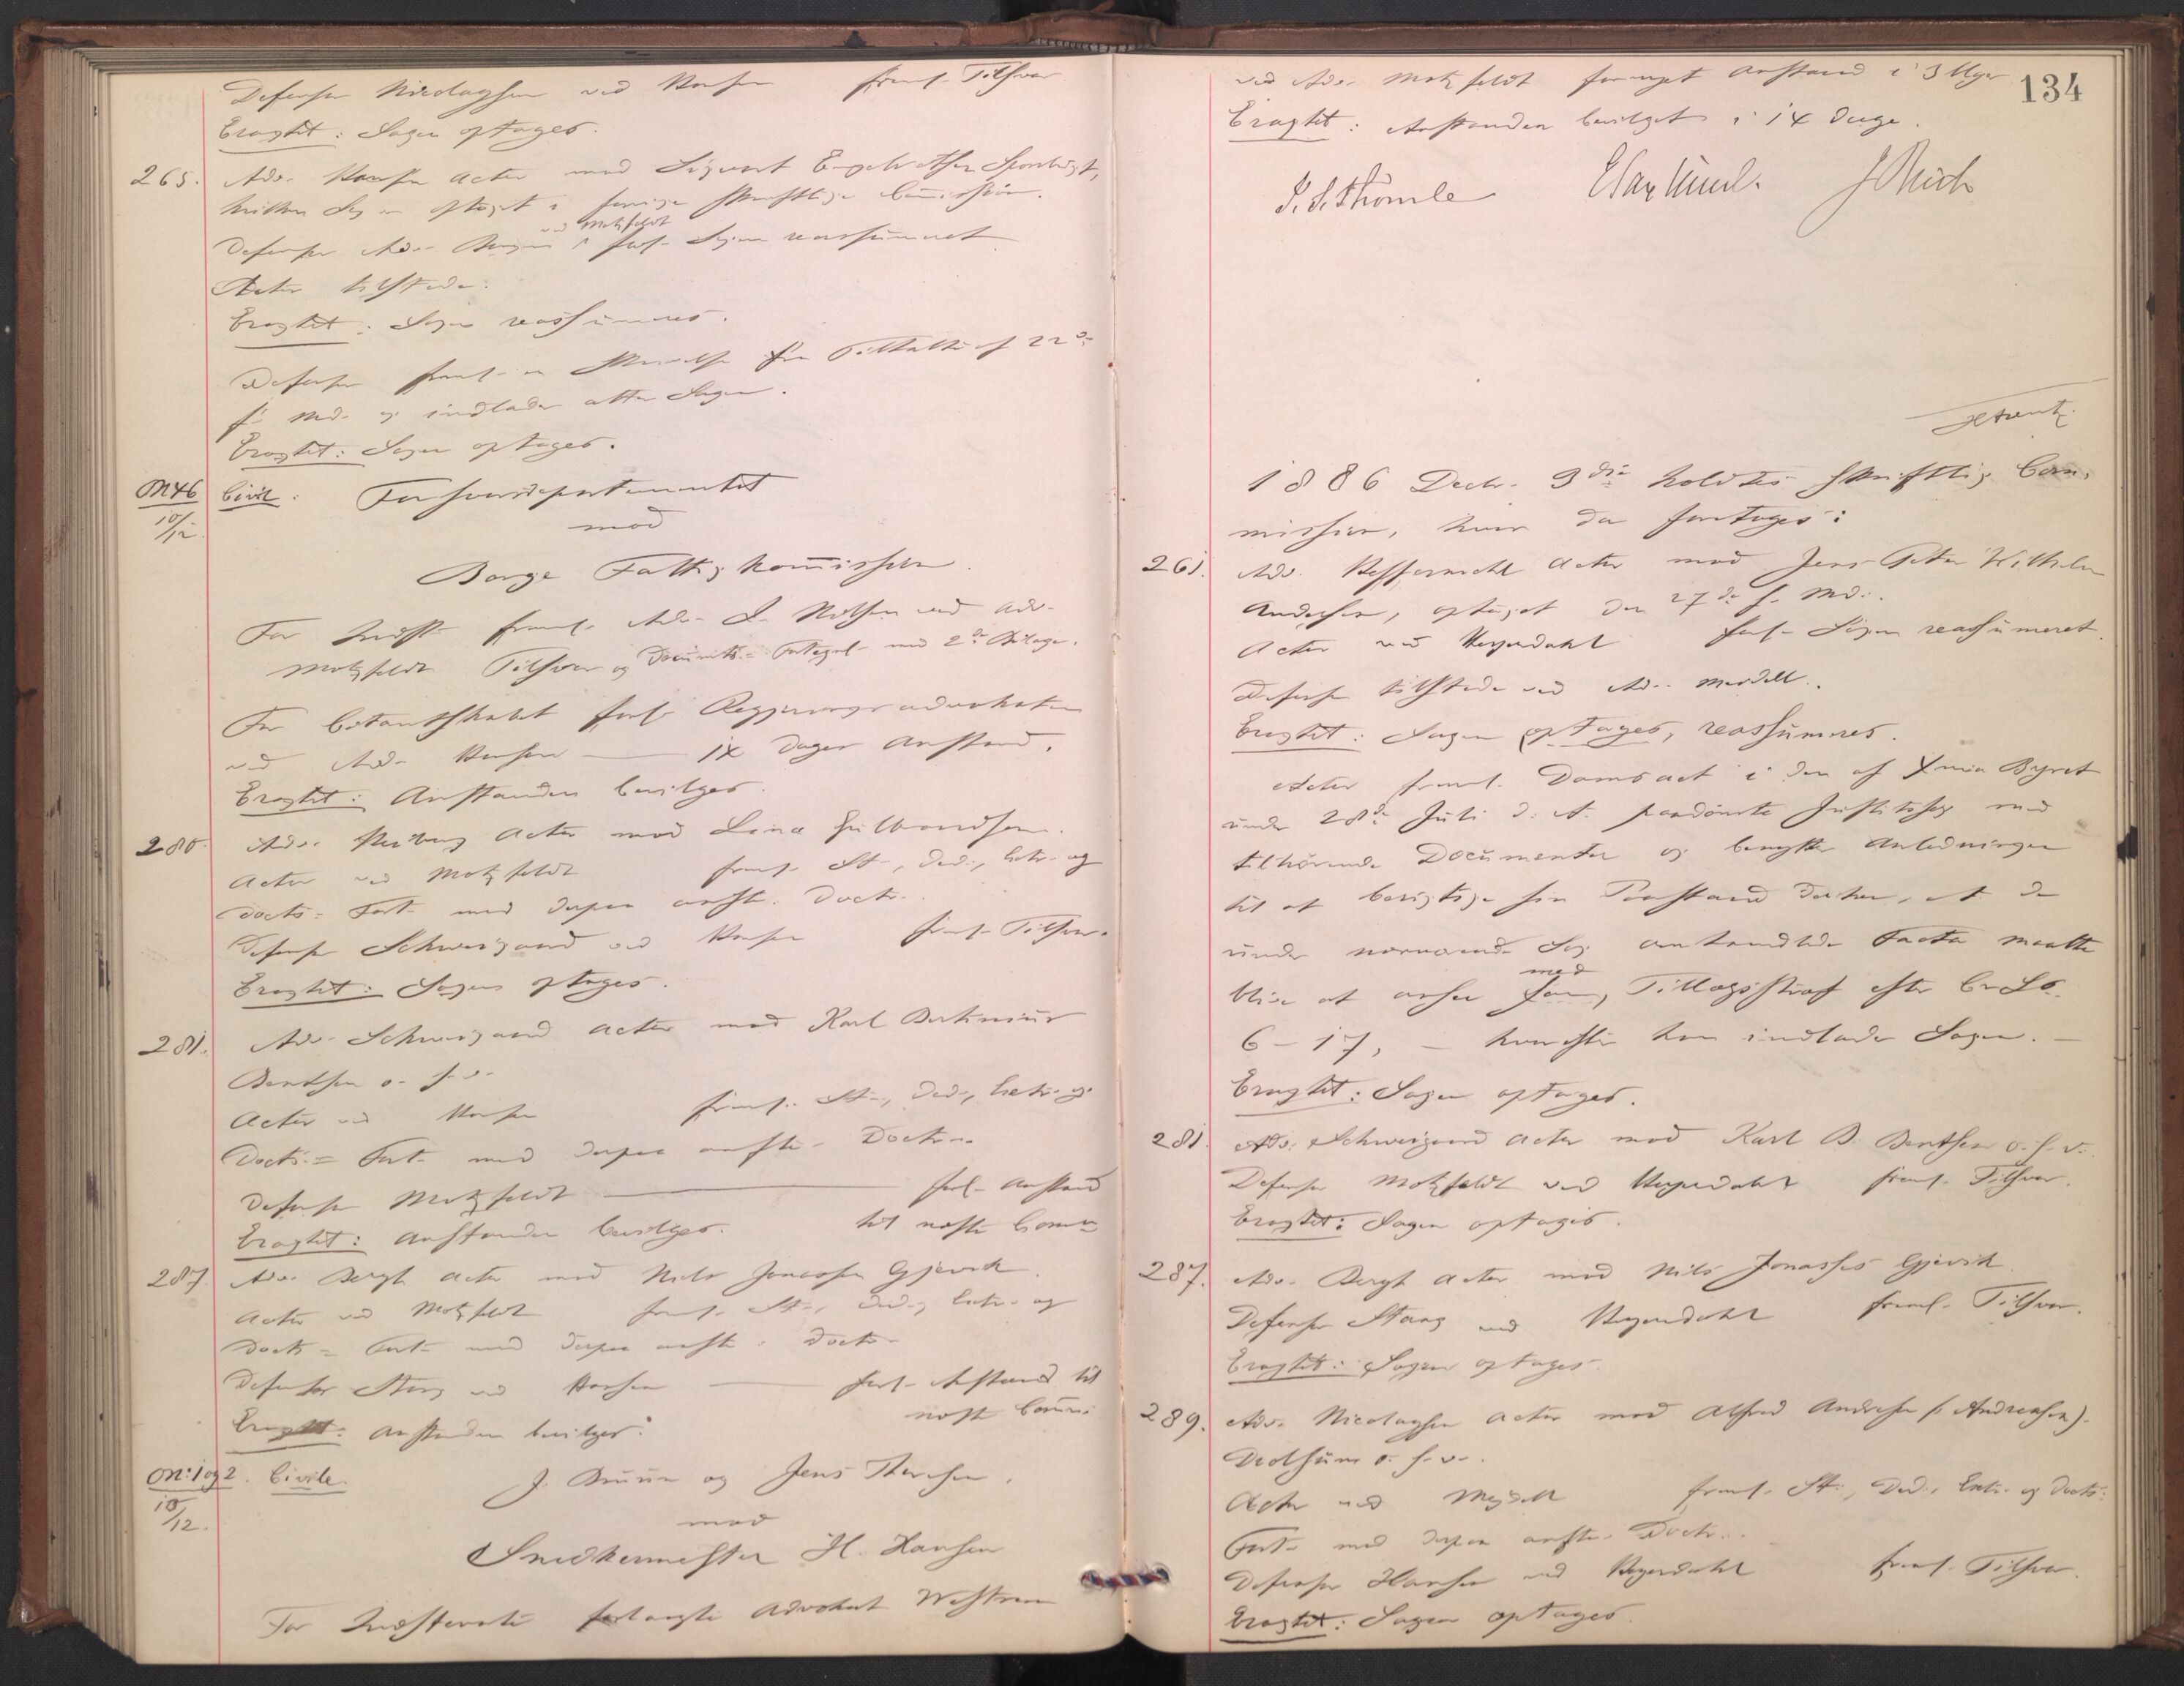 Defensor Nicolaysen ved Hansen freml. Tilsvar
Eragtet: Sagen optages.
265. Adv. Hansen Actor mod Sigvart Engebretsen,
hvilken Sag er optaget i forrige skriftlige Commission.
ved Motzfeldt
Defensor Adv. forl. Sagen reassumeret
Actor tilstede.
Eragtet: Sagen reassumeres.
Defensor freml. en Skrivelse fra Tiltalte af 22de
f. Md. og indlader atter Sagen.
Eragtet: Sagen optages.
M46 Civil: Forsvarsdepartementet
10/12
mod
Borge Fattigkommission.
For Indst. freml. Adv. J. Nilsen ved Adv.
Motzfeldt Tilsvar og Documts= Fortegnl. med 2de Bilage.
For Citantskabet forl. Regjeringsadvokaten
ved Adv. Hansen — 14 Dages Anstand.
Eragtet: Anstanden bevilges.
280. Adv. Actor mod Lina Gulbrandsen.
Actor ved Motzfeldt freml. St., Ded., Extr. og
Docts= Fort. med derpaa anfte. Doctr.
Defensor Schweigaard ved Hansen freml. Tilsvar.
Eragtet: Sagen optages.
281. Adv. Schweigaard Actor mod Karl
Bentsen o. s. v.
Actor ved Hansen freml. St., Ded., Extr. og
Docts= Fort. med derpaa anfte. Doctr.
Defensor Motzfeldt — forl. Anstand
Eragtet: Anstanden bevilges. til næste Comm.
287. Adv. Bergh Actor mod Nils Jonassen Gjervik.
Actor ved Motzfeldt freml. St., Ded., Extr. og
Docts= Fort. med derpaa anfte. Doctr.
Defensor Stang ved Hansen — forl. Anstand til
næste Comm.
Eragtet: Anstanden bevilges.
No: 1 og 2. Civile. J. Bruun og Jens Thoresen.
10/12.
mod
Snedkermester H. Hansen
For Indstevnte forlangte Advokat
134
ved Adv. Motzfeldt fornyet Anstand i 3 Uger
Eragtet: Anstanden bevilget i 14 Dage.
1886 Decbr. 3die holdtes skriftlig Com-
mission, hvor da foretoges:
261. Adv. Actor mod Jens Peter Wilhelm
Andersen, optaget den 27de f. Md.
Actor ved Heyerdahl forl. Sagen reassumeret.
Defensor tilstede ved Adv. Meidell.
Eragtet: Sagen optages, reassumeres.
Actor freml. Domsact i den af Xania Byret
under 28de Juli d. A. paadømte Justitssag med
tilhørende Documenter og benytter Anledningen
til at berigtige sin Paastand derhen, at de
under nævnte Sag omhandlede Facta maatte
med
blive at anse som Tillægsstraf efter Cr. L.
6-17, — hvorefter han indlader Sagen. —
Eragtet: Sagen optages.
281. Adv. Schweigaard Actor mod Karl B. Bentsen o. s. v.
Defensor Motzfeldt ved Heyerdahl freml. Tilsvar.
Eragtet: Sagen optages.
287. Adv. Bergh Actor mod Nils Jonassen Gjervik
Defensor Stang ved Heyerdahl freml. Tilsvar.
Eragtet: Sagen optages.
289. Adv. Nicolaysen Actor mod Alfred Andersen (: Andreasen).
o. s. v.
Actor ved Meidell freml. St., Ded., Extr. og Docts:
Fort. med derpaa anfte. Doctr.
Defensor Hansen ved Heyerdahl freml. Tilsvar.
Eragtet: Sagen optages.